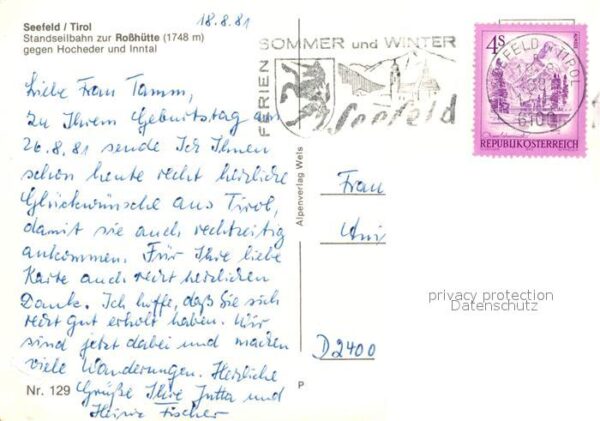 Seefeld / Tirol
Standseilbahn zur Roßhütte (1748 m)
gegen Hocheder und Inntal
18.8.81
Liebe Frau Tamm,
zu Ihrem Geburtstag am
26.8.81 sende Ich Ihnen
schon heute recht herzliche
Glückwünsche aus Tirol,
damit sie auch rechtzeitig
ankommen. Für Ihre liebe
Karte auch recht herzlichen
Dank. Ich hoffe, daß Sie sich
recht gut erholt haben. Wir
sind jetzt dabei und machen
viele Wanderungen. Herzliche
Grüße Ihre Jutta und
Heinz Fischer
Nr. 129
Alpenverlag Wels
P
FERIEN
SOMMER und WINTER
Seefeld
4S
REPUBLIK ÖSTERREICH
SEEFELD TIROL
6100
Frau
D2400
privacy protection
Datenschutz